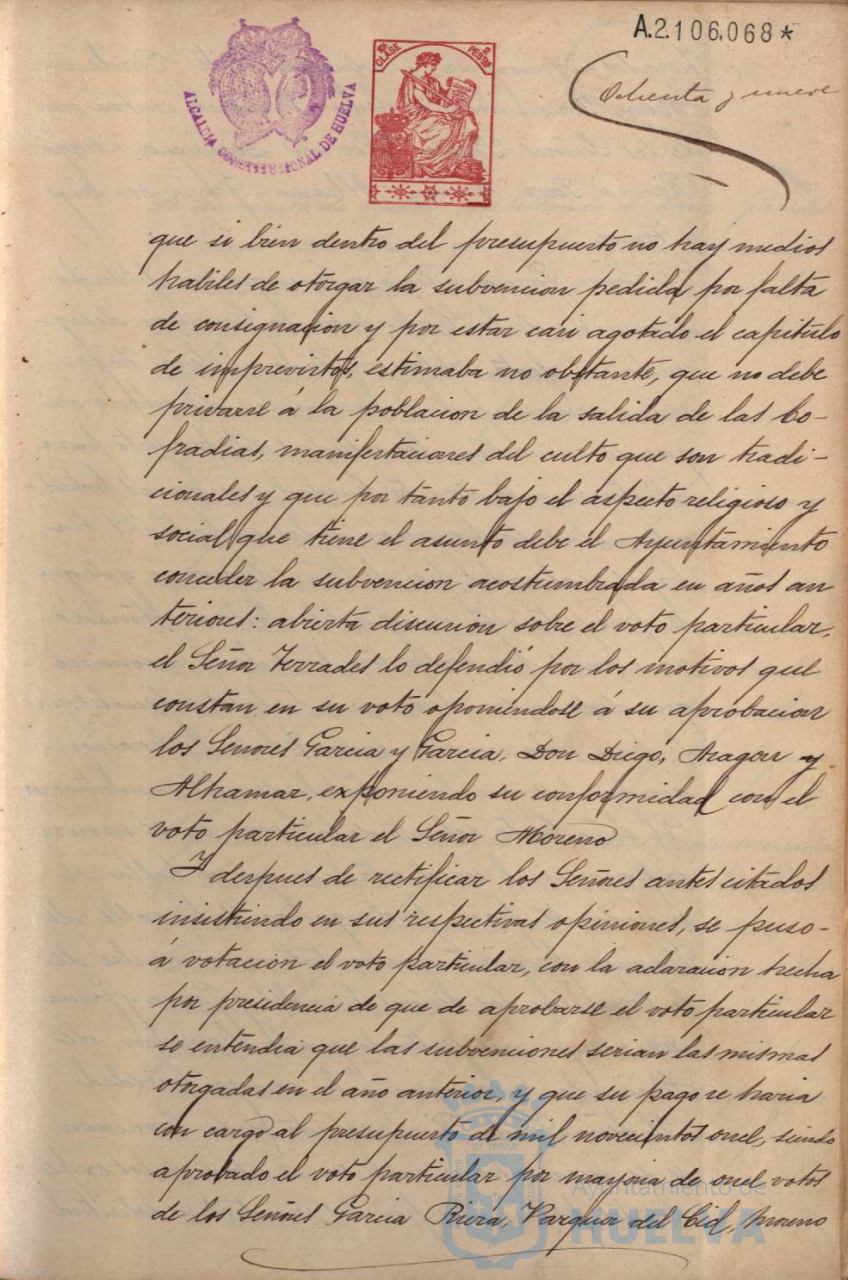 A.2.106.068*
10ª CLASE
PESETAS
ALCALDIA CONSTITUCIONAL DE HUELVA
Ochenta y nueve
que si bien dentro del presupuesto no hay medios
habiles de otorgar la subvencion pedida por falta
de consignacion y por estar casi agotado el capitulo
de imprevistos, estimaba no obstante, que no debe
privarse á la poblacion de la salida de las Co-
fradias, manifestaciones del culto que son tradi-
cionales y que por tanto bajo el aspecto religioso y
social que tiene el asunto debe el Ayuntamiento
conceder la subvencion acostumbrada en años an
teriores: abierta discusion sobre el voto particular,
el Señor Terrades lo defendió por los motivos que
constan en su voto oponiendose á su aprobacion
los Señores Garcia y Garcia, Don Diego, Aragon y
Alhamar, exponiendo su conformidad con el
voto particular el Señor Moreno
Y despues de rectificar los Señores antes citados
insistiendo en sus respectivas opiniones, se puso-
á votacion el voto particular, con la aclaracion hecha
por presidencia de que de aprobarse el voto particular
se entendia que las subvenciones serian las mismas
otorgadas en el año anterior, y que su pago se haria
con cargo al presupuesto de mil novecientos once, siendo
aprobado el voto particular por mayoria de once votos
de los Señores Garcia Riera, Vazquez del Cid, Moreno
Ayuntamiento de
HUELVA